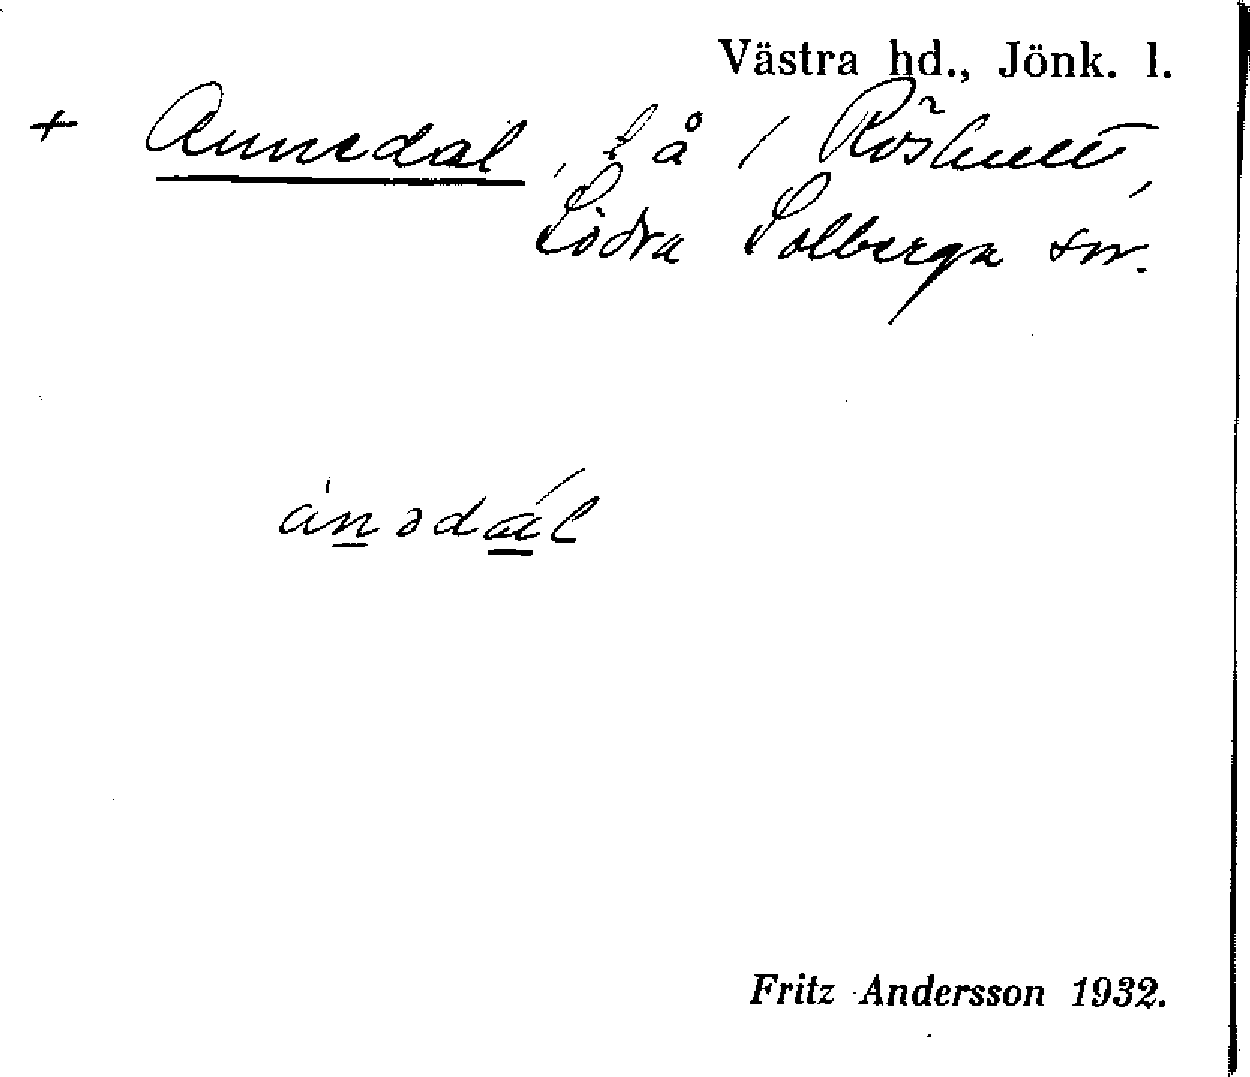 Västra hd., Jönk. l.
+ Annedal, f å / Röshult,
Södra Solberga sn.
ànədál
Fritz Andersson 1932.